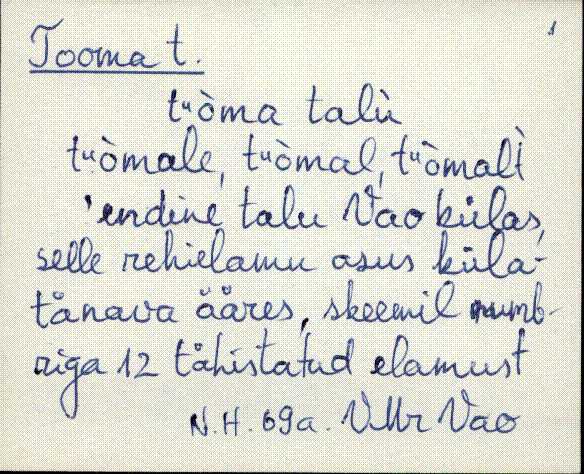 1
Tooma t.
tᵘòma talù
tᵘòmale, tᵘòmal, tᵘòmalt̀
'endine talu Vao külas,
selle rehielamu asus küla-
tänava ääres, skeemil numb-
riga 12 tähistatud elamust
N.H. 69a. VMr Vao